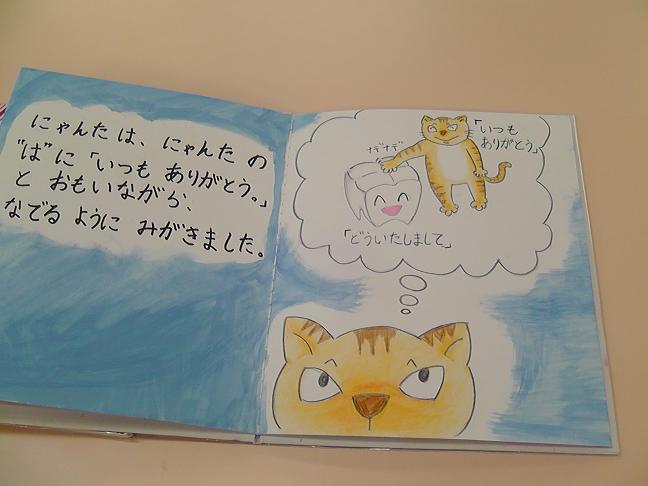 にゃんた は、にゃんた の
"は"に 「いつも ありがとう。」
と おもいながら、
なでる ように みがきました。
「いつも
ありがとう」
ナデナデ
「どういたしまして」